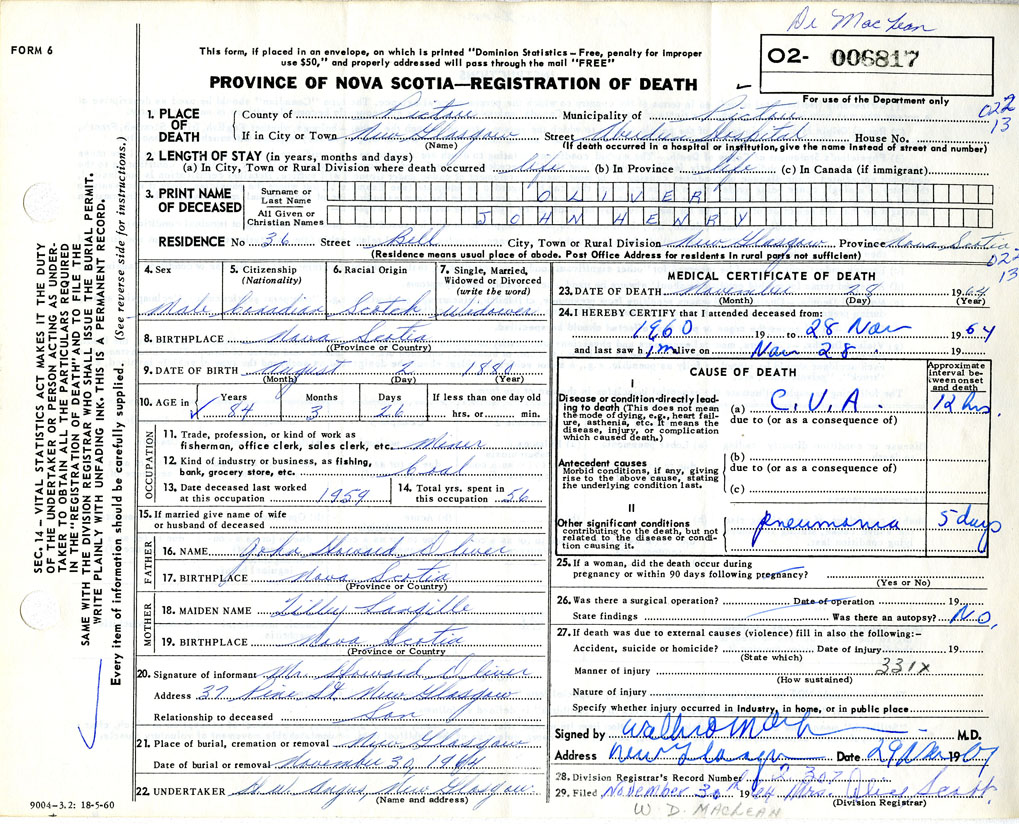 Dr MacLean
FORM 6
This form, if placed in an envelope, on which is printed "Dominion Statistics – Free, penalty for improper
use $50," and properly addressed will pass through the mail "FREE"
02- 006817
PROVINCE OF NOVA SCOTIA—REGISTRATION OF DEATH
For use of the Department only
022
13
1. PLACE OF DEATH
County of Pictou Municipality of Pictou
If in City or Town New Glasgow Street Aberdeen Hospital House No.
(Name) (If death occurred in a hospital or institution, give the name instead of street and number)
2. LENGTH OF STAY (in years, months and days)
(a) In City, Town or Rural Division where death occurred life (b) In Province life (c) In Canada (if immigrant)
3. PRINT NAME OF DECEASED
Surname or Last Name OLIVER
All Given or Christian Names JOHN HENRY
RESIDENCE No 36 Street Bell City, Town or Rural Division New Glasgow Province Nova Scotia
(Residence means usual place of abode. Post Office Address for residents in rural parts not sufficient)
022
13
4. Sex
Male
5. Citizenship
(Nationality)
Canadian
6. Racial Origin
Scotch
7. Single, Married,
Widowed or Divorced
(write the word)
Widower
8. BIRTHPLACE Nova Scotia
(Province or Country)
9. DATE OF BIRTH August 2 1880
(Month) (Day) (Year)
10. AGE in
Years Months Days If less than one day old
84 3 26 hrs. or min.
OCCUPATION
11. Trade, profession, or kind of work as
fisherman, office clerk, sales clerk, etc. Miner
12. Kind of industry or business, as fishing,
bank, grocery store, etc. Coal
13. Date deceased last worked
at this occupation 1959
14. Total yrs. spent in
this occupation 56
15. If married give name of wife
or husband of deceased
FATHER
16. NAME John Howard Oliver
17. BIRTHPLACE Nova Scotia
(Province or Country)
MOTHER
18. MAIDEN NAME Tilly Langille
19. BIRTHPLACE Nova Scotia
(Province or Country
20. Signature of informant Mr. Howard Oliver
Address 37 Pine St. New Glasgow
Relationship to deceased Son
21. Place of burial, cremation or removal New Glasgow
Date of burial or removal November 30, 1964
22. UNDERTAKER H.W. Angus, New Glasgow
(Name and address)
MEDICAL CERTIFICATE OF DEATH
23. DATE OF DEATH November 28 1964
(Month) (Day) (Year)
24. I HEREBY CERTIFY that I attended deceased from:
1960 19 to 28 Nov 1964
and last saw him alive on Nov 28 19
CAUSE OF DEATH
Approximate
interval between onset
and death
I
Disease or condition directly leading to death (This does not mean
the mode of dying, e.g., heart failure, asthenia, etc. It means the
disease, injury, or complication
which caused death.)
(a) C.V.A. 12 hrs.
due to (or as a consequence of)
Antecedent causes
Morbid conditions, if any, giving
rise to the above cause, stating
the underlying condition last.
(b)
due to (or as a consequence of)
(c)
II
Other significant conditions
contributing to the death, but not
related to the disease or condition causing it.
pneumonia 5 days
25. If a woman, did the death occur during
pregnancy or within 90 days following pregnancy?
(Yes or No)
26. Was there a surgical operation? Date of operation 19
State findings Was there an autopsy? NO
27. If death was due to external causes (violence) fill in also the following:–
Accident, suicide or homicide? Date of injury 19
(State which)
Manner of injury 331X
(How sustained)
Nature of injury
Specify whether injury occurred in industry, in home, or in public place
Signed by M.D.
Address New Glasgow Date 29 Nov 19
28. Division Registrar's Record Number 2307
29. Filed November 30th 1964 Mrs. Alice Scott
(Division Registrar)
W. D. MACLEAN
SEC. 14 – VITAL STATISTICS ACT MAKES IT THE DUTY
OF THE UNDERTAKER OR PERSON ACTING AS UNDERTAKER TO OBTAIN ALL THE PARTICULARS REQUIRED
IN THE "REGISTRATION OF DEATH" AND TO FILE THE
SAME WITH THE DIVISION REGISTRAR WHO SHALL ISSUE THE BURIAL PERMIT.
WRITE PLAINLY WITH UNFADING INK. THIS IS A PERMANENT RECORD.
Every item of information should be carefully supplied. (See reverse side for instructions.)
9004–3.2: 18-5-60